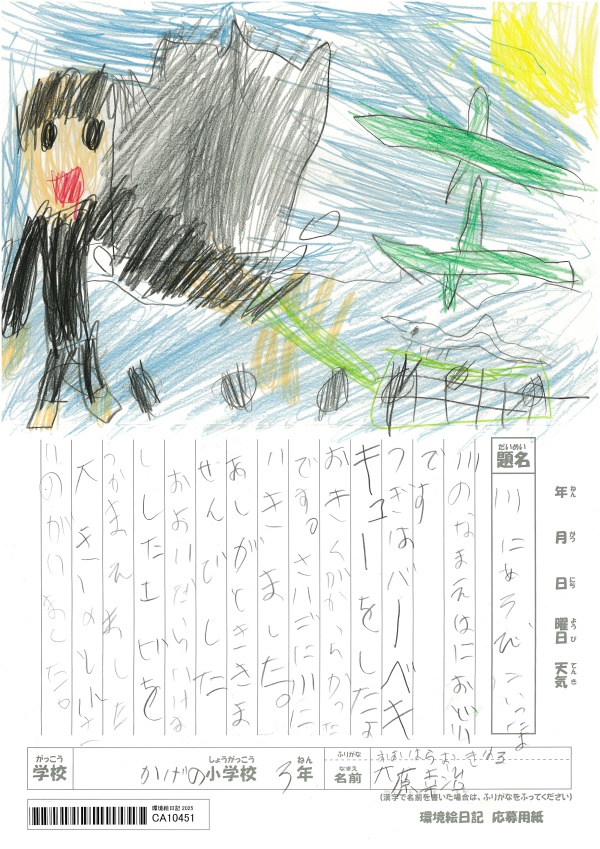 だいめい
題名
川にあそびにいったよ
川のなまえはにおど川
です
つぎはバーベキ
キューをしたよ
おきくがからかった
です。さいごに川に
いきました。
あしがとときま
せんでした
およ
ししたエビを
つかまえました
大きいのと小さ
いのがいました。
年 ねん
月 がつ
日 にち
曜日 ようび
天気 てんき
がっこう
学校
かげの小学校 しょうがっこう 3年 ねん
ふりがな
おおはら
なまえ
名前
大原
(漢字で名前を書いた場合は、ふりがなをふってください)
環境絵日記 2025
CA10451
環境絵日記 応募用紙